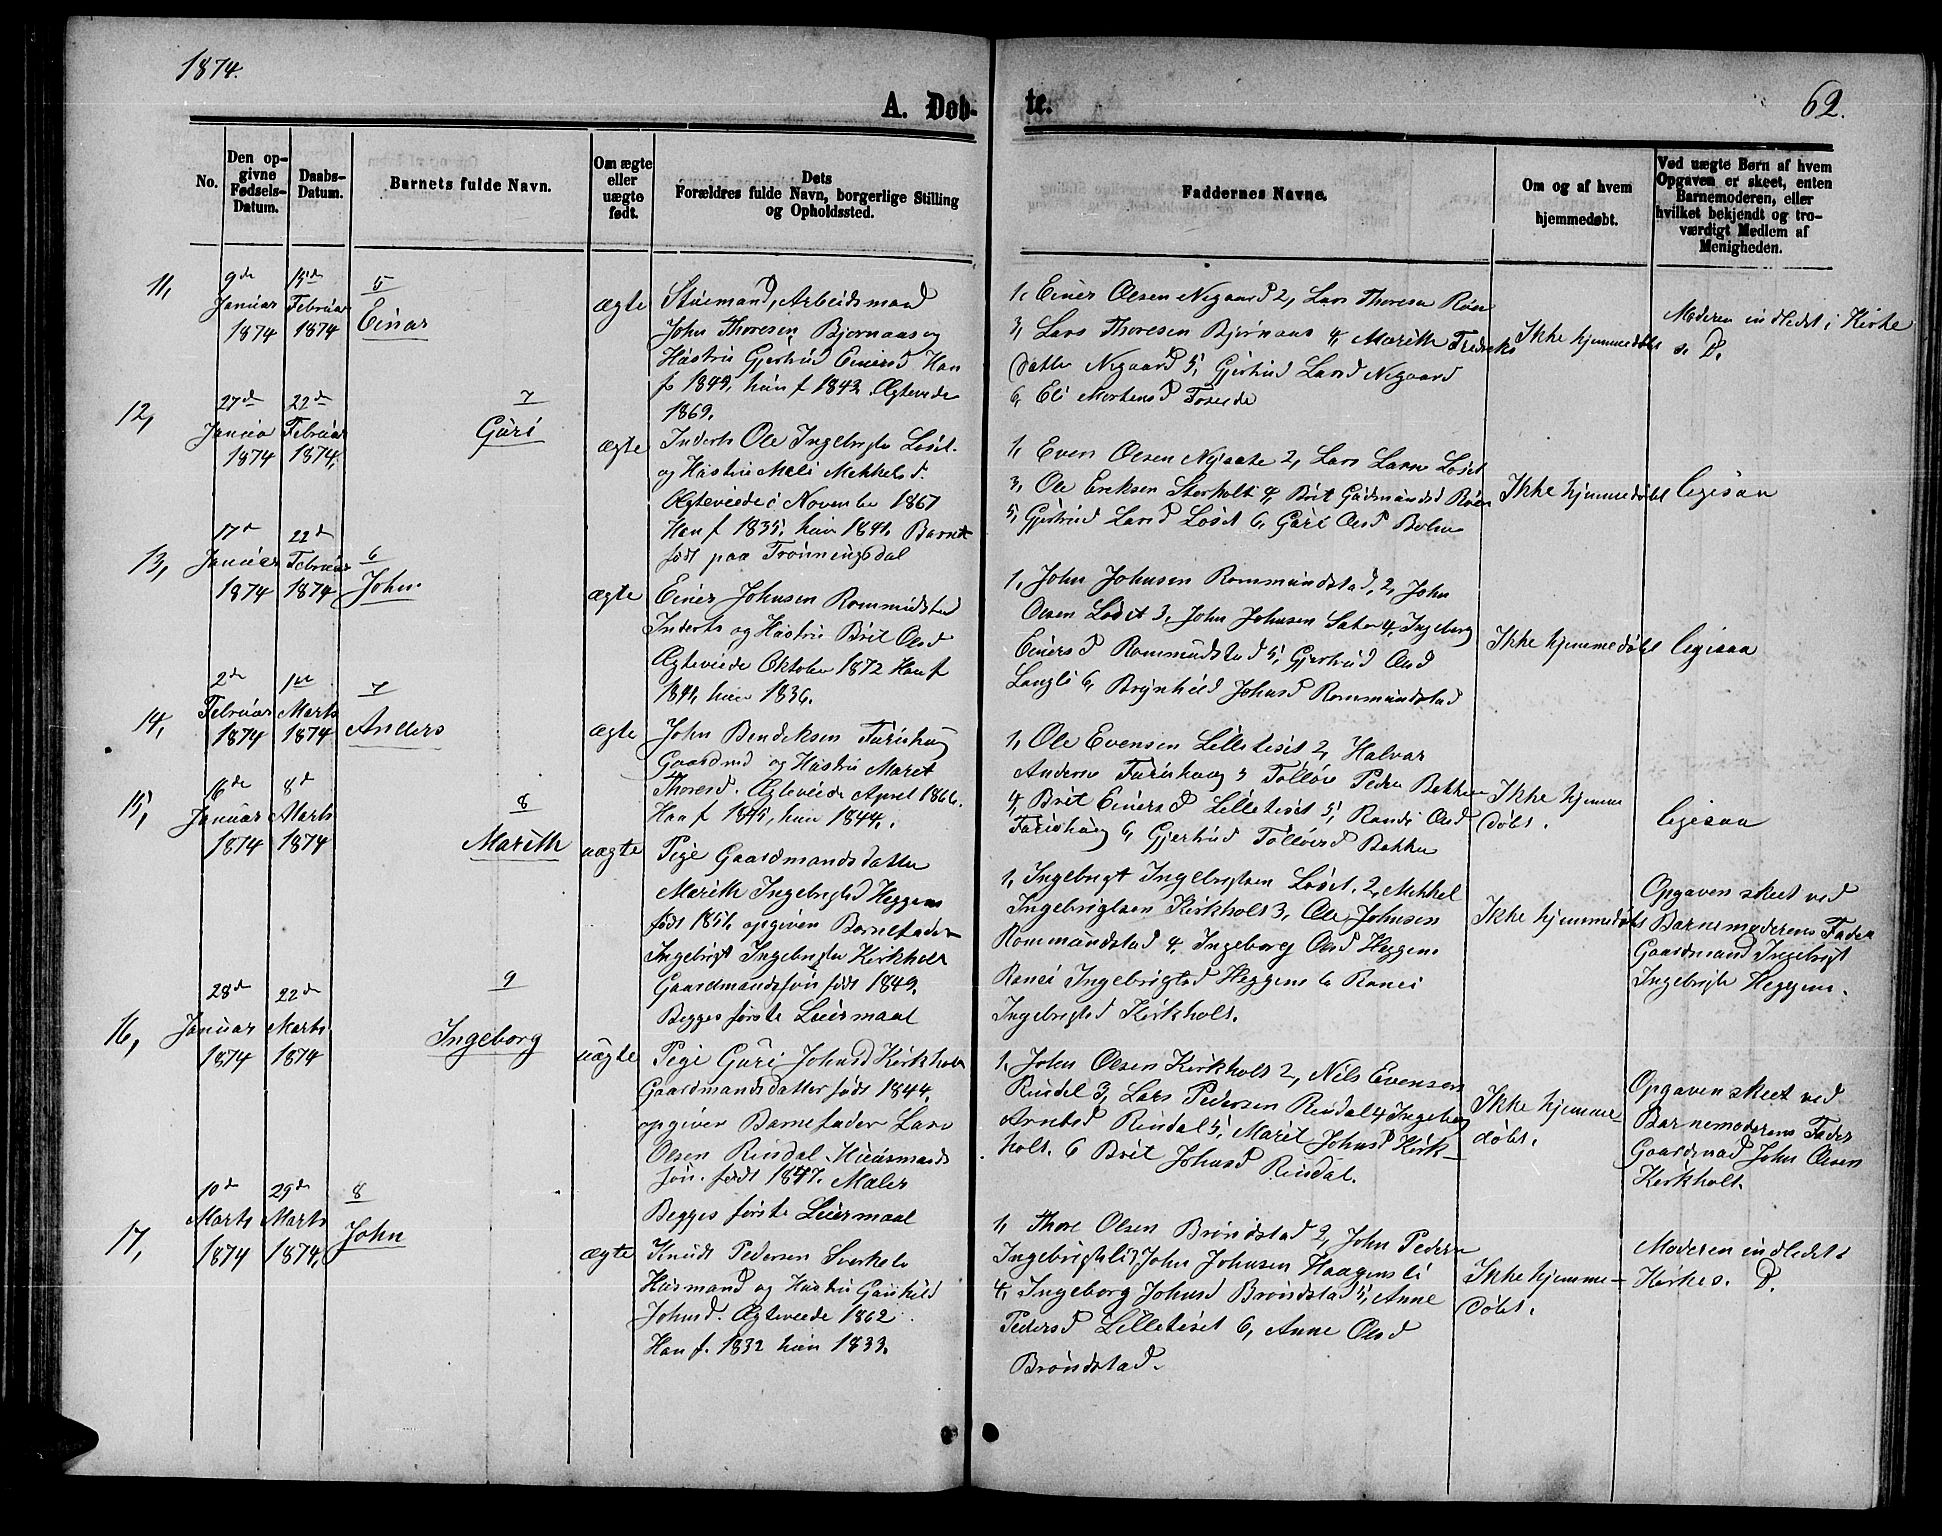 1874.
62.
A. Døb-
te.
No.
Den op-
givne
Fødsels-
Datum.
Daabs-
Datum.
Barnets fulde Navn.
Om ægte
eller
uægte
født.
Dets
Forældres fulde Navn, borgerlige Stilling
og Opholdssted.
Faddernes Navne.
Om og af hvem
hjemmedøbt.
Ved uægte Børn af hvem
Opgaven er skeet, enten
Barnemoderen, eller
hvilket bekjendt og tro-
værdigt Medlem af
Menigheden.
11,
9de
Januar
1874
15de
Februar
1874
5
Einar
ægte
Stuemand, Arbeidsmand
John Thoresen Bjørnaas og
Hustru Gjertrud Einersd Han
f 1849, hun f 1842 Ægteviede
1869.
1, Einer Olsen Nigaard 2, Lars Thoresen Røen
3, Lars Thoresen Bjørnaas 4, Marith Fredriks
datter Nigaard 5, Gjertrud Larsd Nigaard
6, Eli Mortensd
Ikke hjemmedøbt
Moderen indledet i Kirke
s. D.
12,
27de
Januar
1874
22de
Februar
1874,
7
Guri
ægte
Inderts Ole Ingebrigts Løset
og Hustru Mali Mekkelsd.
Ægteviede i November 1867
Han f 1835, hun 1841, Barnet
født paa Trønningsdal
1, Even Olsen 2, Lars Larsen Løset
3, Ole Eriksen Storholt 4, Brit Gudmundsd Røen
5, Gjertrud Larsd Løset 6, Guri Olsd Bolme
Ikke hjemmedøbt
ligesaa
13,
17de
Januar
1874
22de
Februar
1874
6
John
ægte
Einer Johnsen Rommundstad
Inderts og Hustru Brit Olsd
Ægteviede Oktober 1872 Han f
1841, hun 1836.
1, John Johnsen Rommundstad, 2, John
Olsen Løset 3, John Johnsen Sæter 4, Ingeborg
Einersd Rommundstad 5, Gjertrud Olsd
Langli 6, Brynhild Johnsd Rommundstad
Ikke hjemmedøbt
ligesaa
14,
2de
Februar
1874
1ste
Marts
1874
7
Anders
ægte
John Bendiksen Furuhaug
Gaardmd og Hustru Maret
Thoresd. Ægteviede April 1866.
Han f 1841, hun 1844,
1, Ole Evensen Lilleløset 2, Halvar
Andersen Furuhaug 3 Tolløv Pedersen Bakken
4, Brit Einersd Lilleløset 5, Randi Olsd
Furuhaug 6, Gjertrud Tolløvsd Bakken
Ikke hjemme
døbt.
ligesaa
15,
16de
Januar
1874
8de
Marts
1874
8
Marith
uægte
Pige Gaardmandsdatter
Marith Ingebrigtsd Heggem
født 1851, opgiven Barnefader
Ingebrigt Ingebrigts Kirkholt
Gaardmandssøn født 1849.
Begges første Leiermaal
1, Ingebrigt Ingebrigtsen Løset, 2, Mekkel
Ingebrigtsen Kirkholt 3, Ole Johnsen
Rommundstad 4, Ingeborg Olsd Heggem
Ranei Ingebrigtsd Heggem 6 Ranei
Ingebrigtsd Kirkholt.
Ikke hjemmedøbt
Opgaven skeet ved
Barnemoderens Fader
Gaardmand Ingebrigt
Ingebrigts Heggem.
16,
28de
Januar
1874
22de
Marts
1874
9
Ingeborg
uægte
Pige Guri Johnsd Kirkholt
Gaardmandsdatter født 1844,
opgiven Barnefader Lars
Olsen Rindal Huusmands
søn. født 1847. Maler
Begges første Leiermaal
1, John Olsen Kirkholt 2, Nils Evensen
Rindal 3, Lars Pedersen Rindal 4 Ingeborg
Arntsd Rindal 5, Marit Johnsd Kirk-
holt. 6 Brit Johnsd Rindal.
Ikke hjemme-
døbt.
Opgaven skeet ved
Barnemoderens Fader
Gaardmd John Olsen
Kirkholt.
17,
10de
Marts
1874
29de
Marts
1874,
8
John
ægte
Knudt Pedersen Sverkeli
Husmand og Hustru Gunhild
Johnsd. Ægteviede 1862
Han f. 1832 hun 1833.
1, Thore Olsen Brøndstad 2, John Pedersen
Ingebrigtsli 3, John Johnsen Haagensli
4, Ingeborg Johnsd Brøndstad 5, Anne
Pedersd Lilleløset 6, Anne Olsd
Brøndstad.
Ikke hjemme-
døbt.
Moderen indledet i
Kirke s. D.